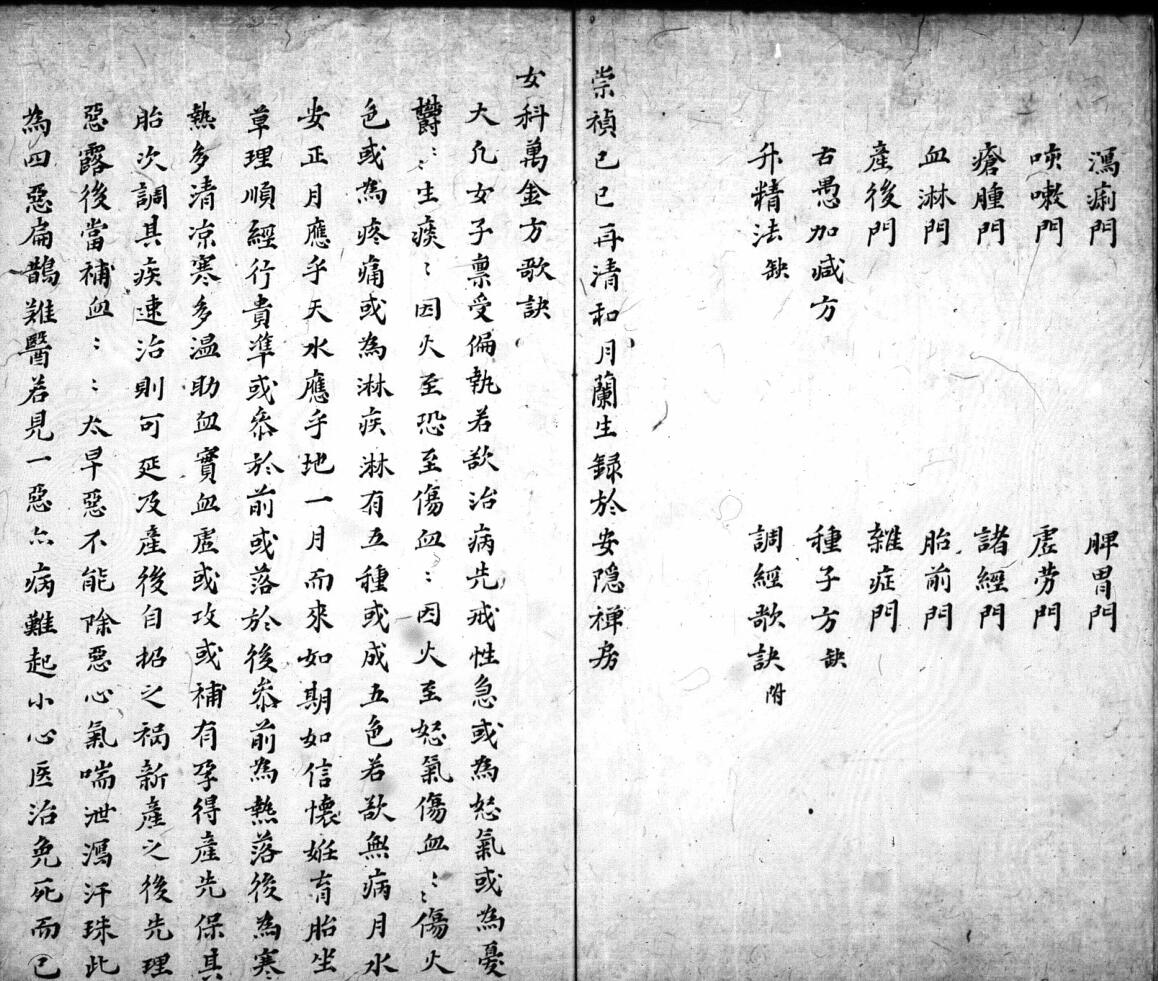 瀉痢門　脾胃門
咳嗽門　虗劳門
瘡腫門　諸經門
血淋門　胎前門
產後門　雜症門
古愚加减方　種子方缺
升精法缺　調經歌訣附
崇禎已巳再清和月蘭生録於安隠禅房
女科萬金方歌訣
大凡女子禀受偏執若欲治病先戒性急或為怒氣或為憂
欝〻生痰〻因火至恐至傷血〻因火至怒氣傷血〻傷火
色或為疼痛或為淋疾淋有五種或成五色若欲無病月水
安正月應乎天水應乎地一月而來如期如信懷姙育胎坐
草理順經行貴凖或叅於前或落於後叅前為熱落後為寒
熱多清凉寒多温助血實血虗或攻或補有孕得產先保其
胎次調其疾速治則可延及產後自招之祸新產之後先理
惡露後當補血〻〻太早惡不能除惡心氣喘泄瀉汗珠此
為四惡扁鵲难醫若見一惡亦病難起小心医治免死而已